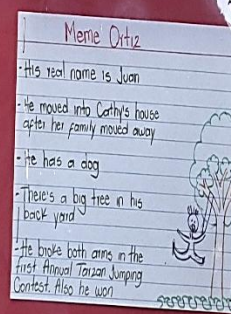 Meme Ortiz
- His real name is Juan
- He moved into Cathy's house
after her family moved away
- He has a dog
- There's a big tree in his
back yard
- He broke both arms in the
first Annual Tarzan Jumping
Contest. Also he won